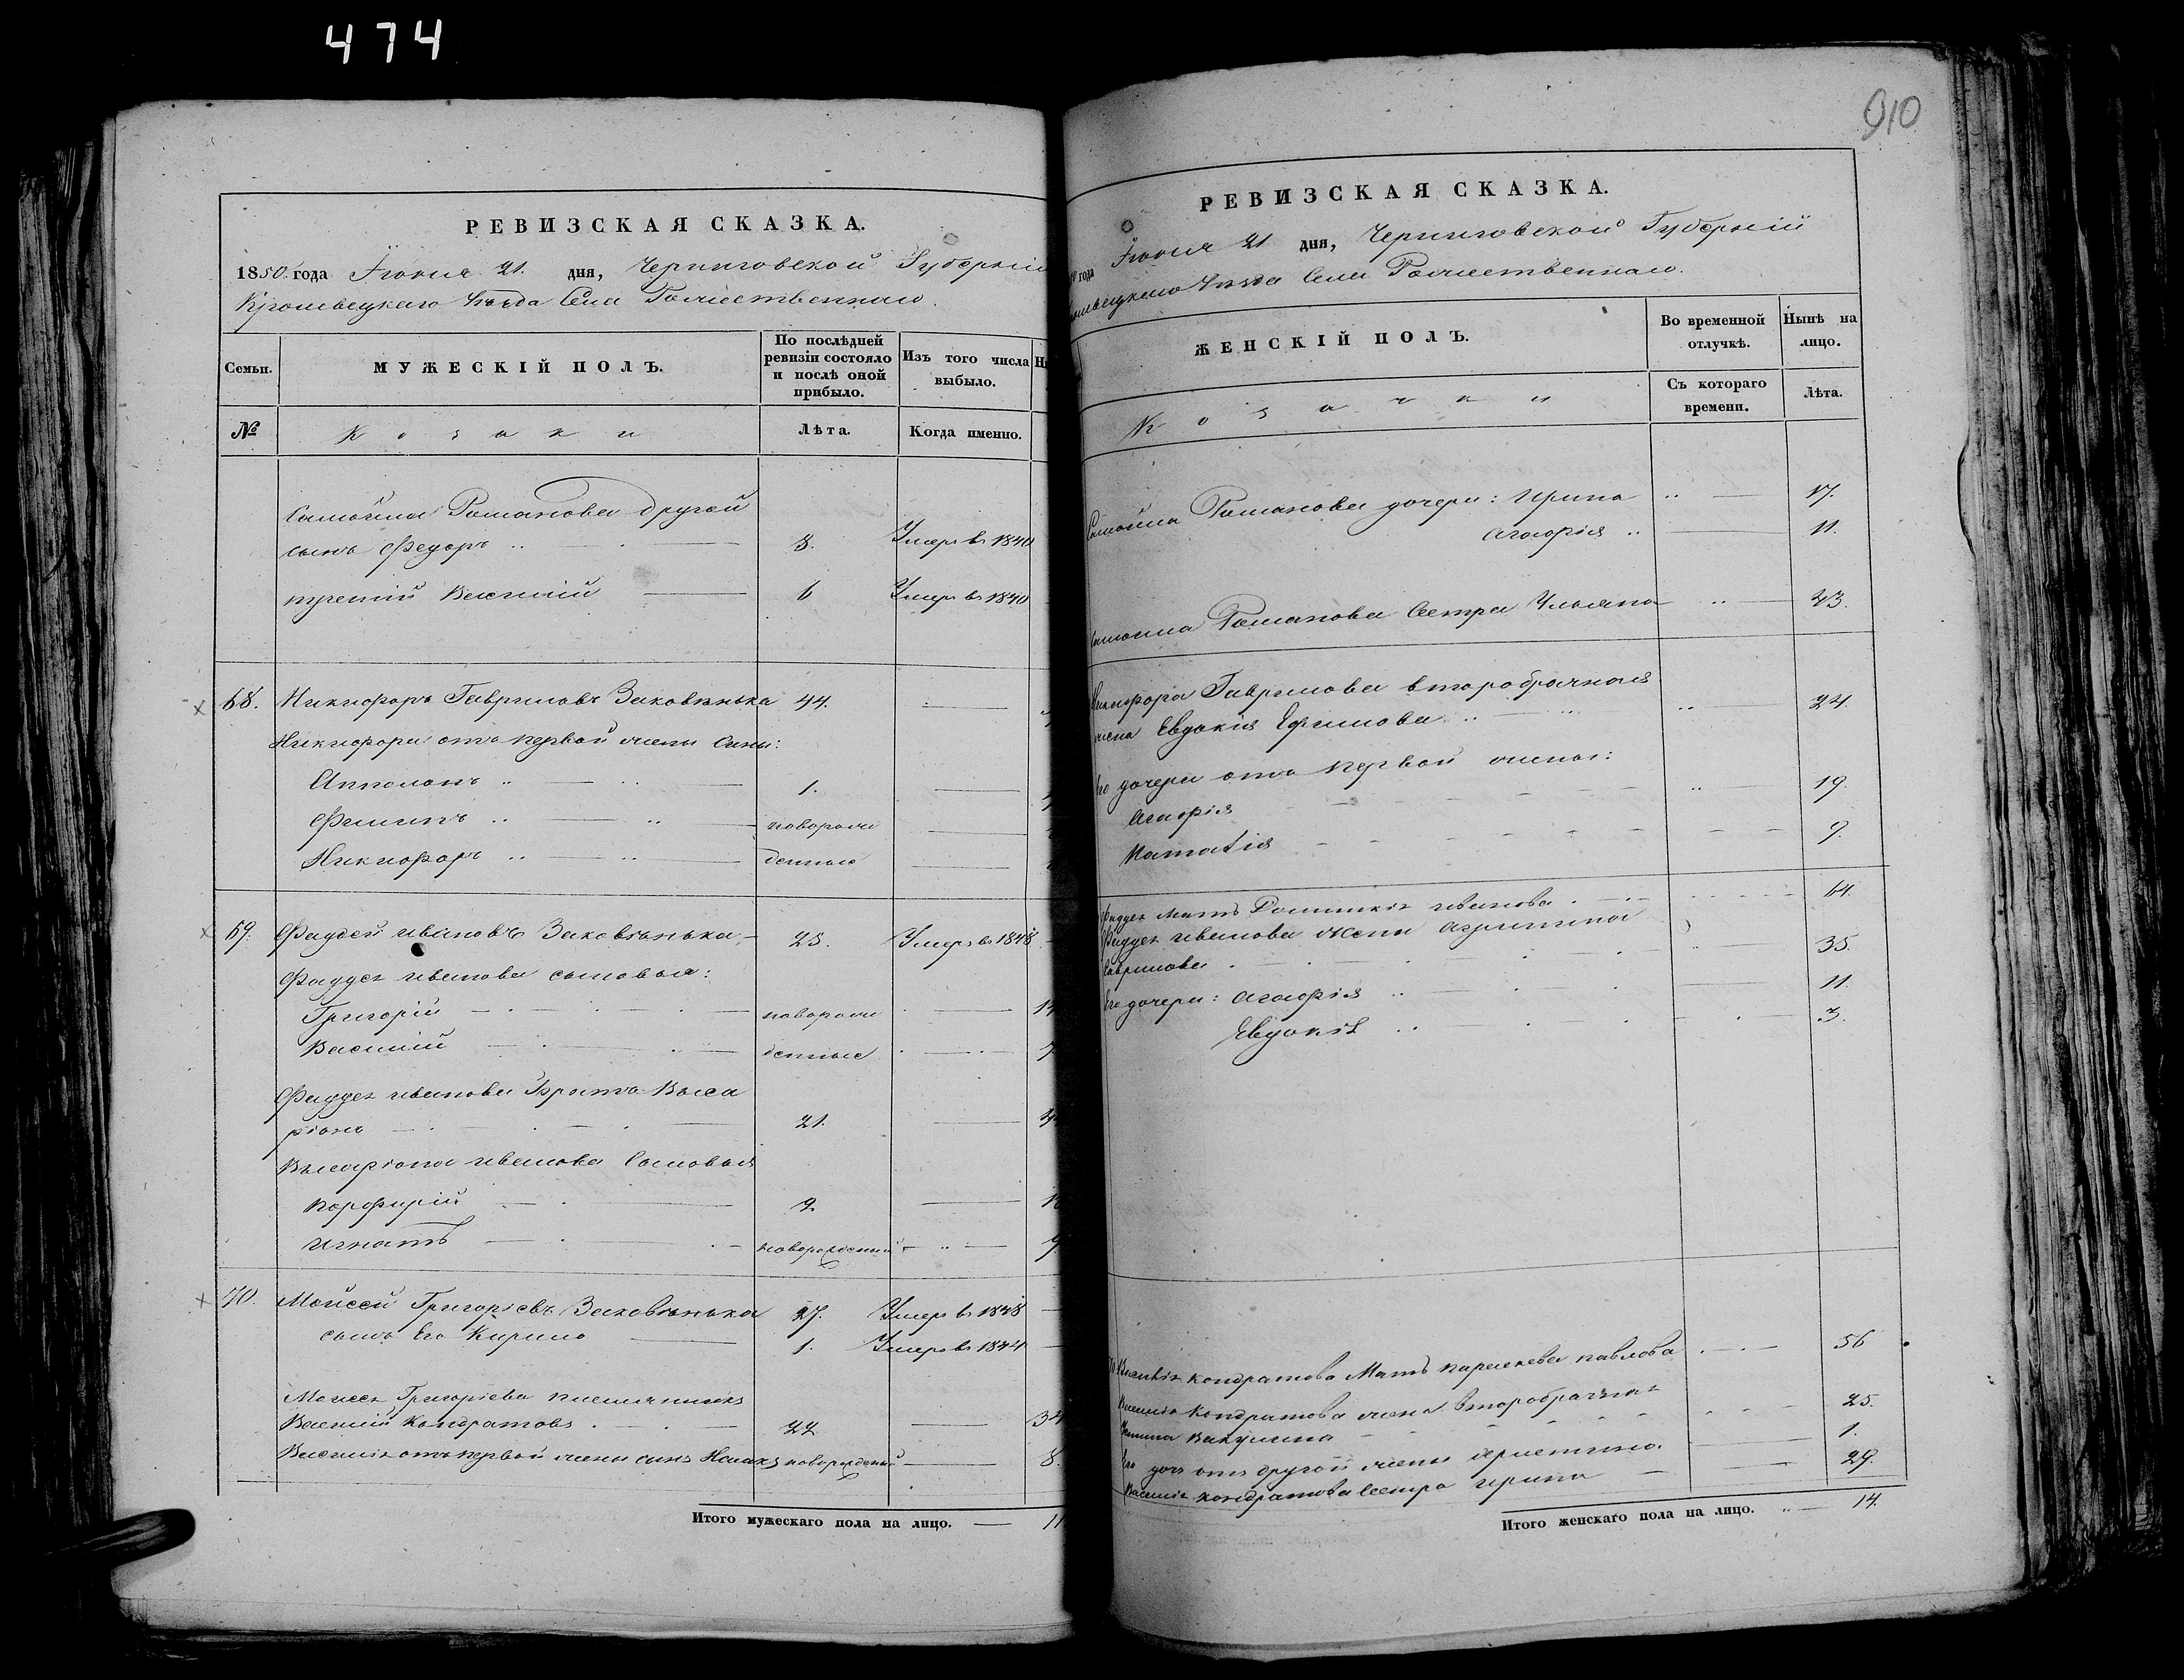 474
РЕВИЗСКАЯ СКАЗКА.
1850 года Іюня 21. дня, Черниговской Губерніи
Кролевецкаго Уѣзда Села Рожественнаго.
Семьи.
МУЖЕСКІЙ ПОЛЪ.
По послѣдней ревизіи состояло и послѣ оной прибыло.
Изъ того числа выбыло.
№
Козаки
Лѣта.
Когда именно.
Самойла Романова другой
сынъ Федоръ .. 8. Умеръ въ 1840
третій Василій 6 Умеръ въ 1840
68. Никифоръ Гавриловъ Заховѣнька 44.
Никифора отъ первой жены сыны:
Апполонъ .. 1.
Филипъ .. новорож
Никифоръ .. денные
69. Фаддей Ивановъ Заховѣнька 25. Умеръ въ 1848
Фаддея Иванова сыновья:
Григорій новорож
Василій денные
Фаддея Иванова братъ Висса
ріонъ 21.
Висаріона Иванова сыновья
Порфирій 9.
Игнатъ новорожденный
70. Мойсей Григорьевъ Заховѣнька 27. Умеръ въ 1848
сынъ Его Кирило 1. Умеръ въ 1844
Моисея Григоріева племянникъ
Василій Кондратовъ 22 34
Василія отъ первой жены сынъ Исаакъ новорожденный 8.
Итого мужескаго пола на лицо. 11
910
РЕВИЗСКАЯ СКАЗКА.
года Іюня 21 дня, Черниговской Губерніи
Уѣзда Села Рожественнаго.
ЖЕНСКІЙ ПОЛЪ.
Во временной отлучкѣ.
Нынѣ на лицо.
Козачки
Съ котораго времени.
Лѣта.
Самойла Романова дочери: Ирина .. 17.
Агафія .. 11.
Самойла Романова сестра Ульяна .. 43.
Никифора Гаврилова второбрачная
жена Евдокія Ефимова .. 24.
Его дочери отъ первой жены:
Агафія 19.
Наталія 9.
Фаддея Мать Домникія Иванова 64.
Фаддея Иванова жена Агрипина
Гаврилова 35.
Его дочери: Агафія .. 11.
Евдокія .. 3.
Василія Кондратова Мать Параскева Павлова 56
Василія Кондратова жена второбрачная
Вакулина 25.
Его дочь отъ другой жены 1.
Василія Кондратова сестра Ирина 29.
Итого женскаго пола на лицо. 14.